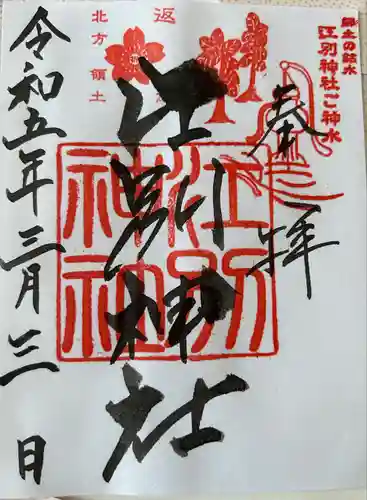 郷土の銘水
江別神社ご神水
奉拝
返
北方領土
江別神社
江別神社
令和五年三月三日